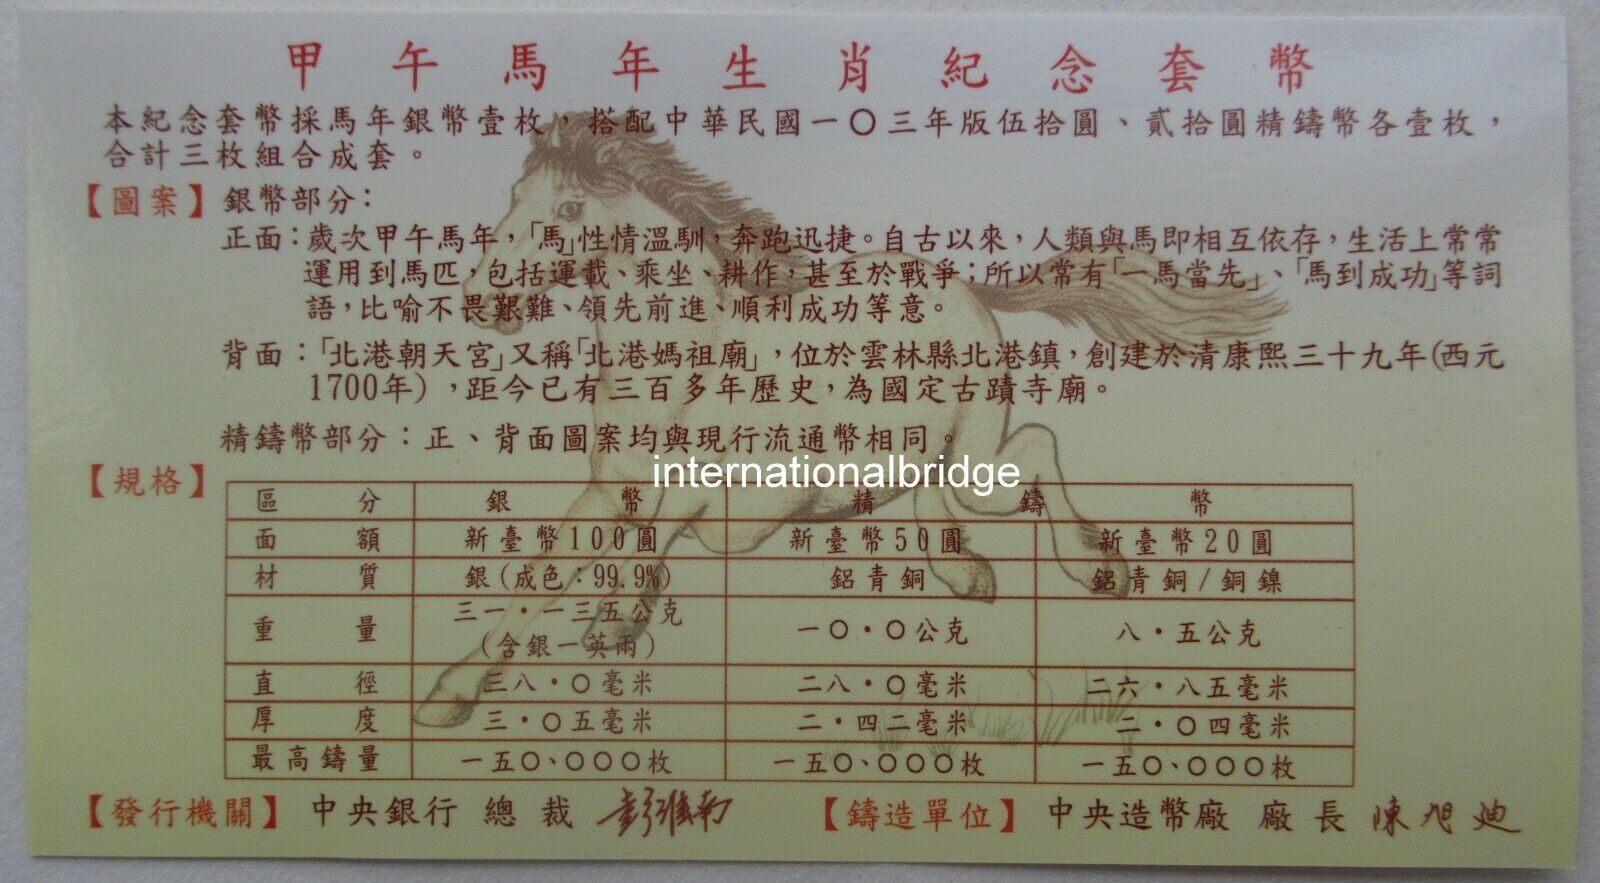 甲午馬年生肖紀念套幣
本紀念套幣採馬年銀幣壹枚，搭配中華民國一〇三年版伍拾圓、貳拾圓精鑄幣各壹枚，
合計三枚組合成套。
【圖案】銀幣部分：
正面：歲次甲午馬年，「馬」性情溫馴，奔跑迅捷。自古以來，人類與馬即相互依存，生活上常常
運用到馬匹，包括運載、乘坐、耕作，甚至於戰爭；所以常有「一馬當先」、「馬到成功」等詞
語，比喻不畏艱難、領先前進、順利成功等意。
背面：「北港朝天宮」又稱「北港媽祖廟」，位於雲林縣北港鎮，創建於清康熙三十九年(西元
1700年)，距今已有三百多年歷史，為國定古蹟寺廟。
精鑄幣部分：正、背面圖案均與現行流通幣相同。
internationalbridge
【規格】
區分 銀幣 精鑄幣
面額 新臺幣100圓 新臺幣50圓 新臺幣20圓
材質 銀(成色：99.9%) 鋁青銅 鋁青銅/銅鎳
重量 三一・一三五公克 一〇・〇公克 八・五公克
(含銀一英兩)
直徑 三八・〇毫米 二八・〇毫米 二六・八五毫米
厚度 三・〇五毫米 二・四二毫米 二・〇四毫米
最高鑄量 一五〇、〇〇〇枚 一五〇、〇〇〇枚 一五〇、〇〇〇枚
【發行機關】中央銀行 總裁 彭淮南 【鑄造單位】中央造幣廠 廠長 陳旭迪